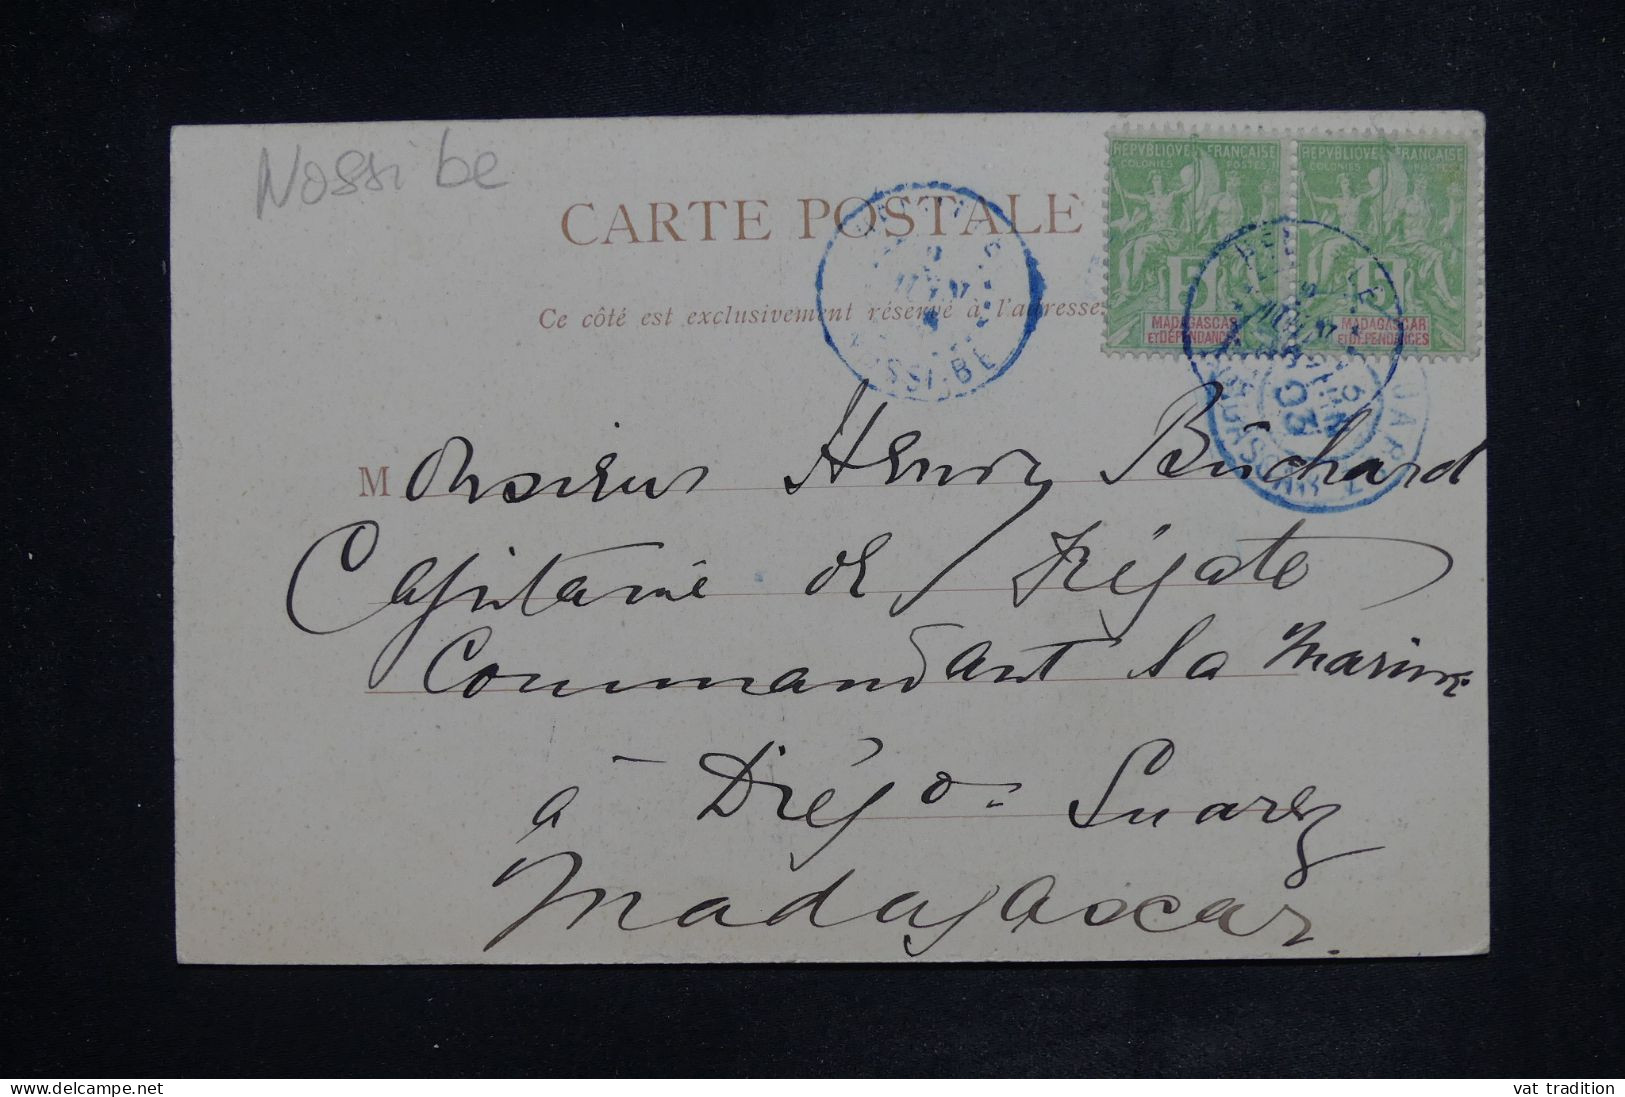 Nossi be
CARTE POSTALE
REPVBLIQVE FRANÇAISE
COLONIES POSTES
5
MADAGASCAR
ET DÉPENDANCES
REPVBLIQVE FRANÇAISE
COLONIES POSTES
5
MADAGASCAR
ET DÉPENDANCES
JUIN
NOSSI-BÉ
HELL-VILLE
JUIN
03
Ce côté est exclusivement réservé à l'adresse
Monsieur Henry Buchard
Capitaine de Frégate
Commandant la Marine
à Diégo-Suarez
Madagascar.
www.delcampe.net
vat tradition